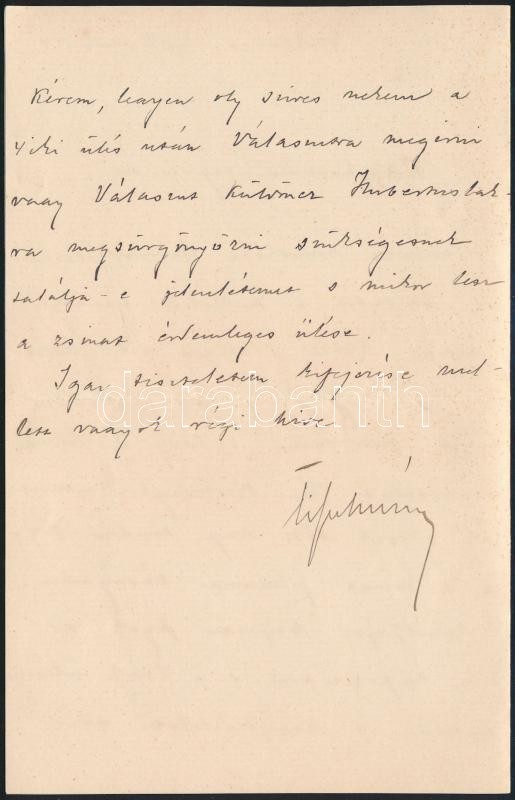 Kérem, legyen oly szives nekem a
4iki ülés után Válaszutra megirni
vagy Válaszut Külömez Hubertuslak-
ra megsürgönyözni szükségesnek
találja-e jelenlétemet s mikor lesz
a zsinat érdemleges ülése.
Igaz tiszteletem kifejezése mel-
lett vagyok régi hive
darabanth